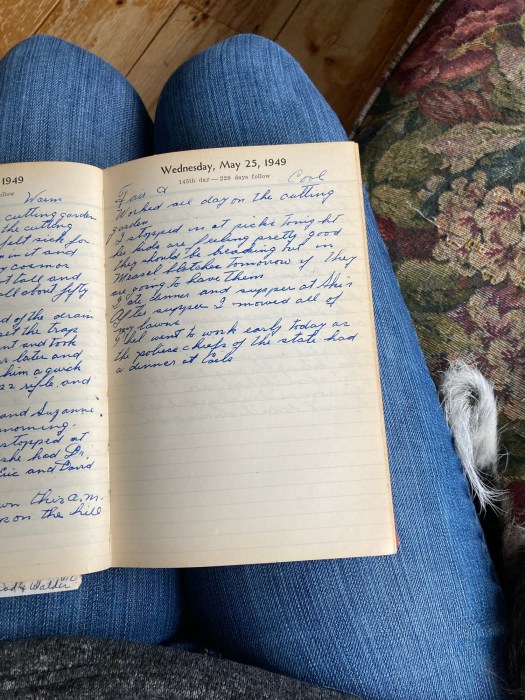 1949
Warm
cutting garden
the cutting
felt sick for
in it and
cosmos
t tall and
all about fifty
d of the drain
set the trap
nt and took
later and
him a quick
22 rifle and
and Suzanne
morning.
stopped at
she had Dr.
Eric and David
wn this a.m.
on the hill
Wednesday, May 25, 1949
145th day—220 days follow
Cool
Worked all day on the cutting
garden
I stopped in at tonight
the kids are feeling pretty good
They should be breaking out in
Measel bloches tomorrow if they
are going to have them
I ate dinner and supper at
After supper I mowed all of
my lawns
went to work early today as
the police chiefs of the state had
a dinner at